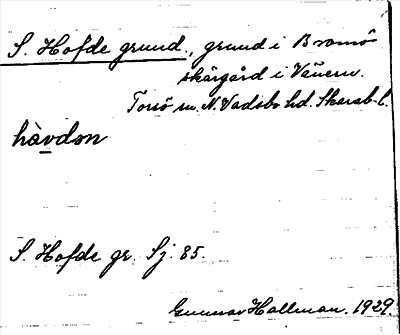 S. Hofde grund., grund i Bromö
skärgård i Vänern.
Torsö sn. N. Vadsbo hd. Skarab. l.
hàvdən
S. Hofde gr. Sj. 85.
Gunnar Hallman. 1929.